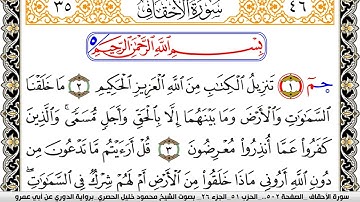 ٣٥
سُورَةُ الأَحْقَافِ
٤٦
٥
بِسْمِ اللَّهِ الرَّحْمَٰنِ الرَّحِيمِ
حمٓ ١ تَنزِيلُ الْكِتَابِ مِنَ اللَّهِ الْعَزِيزِ الْحَكِيمِ ٢ مَا خَلَقْنَا
السَّمَٰوَٰتِ وَالْأَرْضَ وَمَا بَيْنَهُمَا إِلَّا بِالْحَقِّ وَأَجَلٍ مُّسَمًّى وَالَّذِينَ
كَفَرُوا عَمَّا أُنذِرُوا مُعْرِضُونَ ٣ قُلْ أَرَءَيْتُم مَّا تَدْعُونَ مِن
دُونِ اللَّهِ أَرُونِي مَاذَا خَلَقُوا مِنَ الْأَرْضِ أَمْ لَهُمْ شِرْكٌ فِي السَّمَٰوَٰتِ
سورة الأحقاف .. الصفحة ٥٠٢ .. الحزب ٥١ .. الجزء ٢٦ .. بصوت الشيخ محمود خليل الحصري .. برواية الدوري عن أبي عمرو